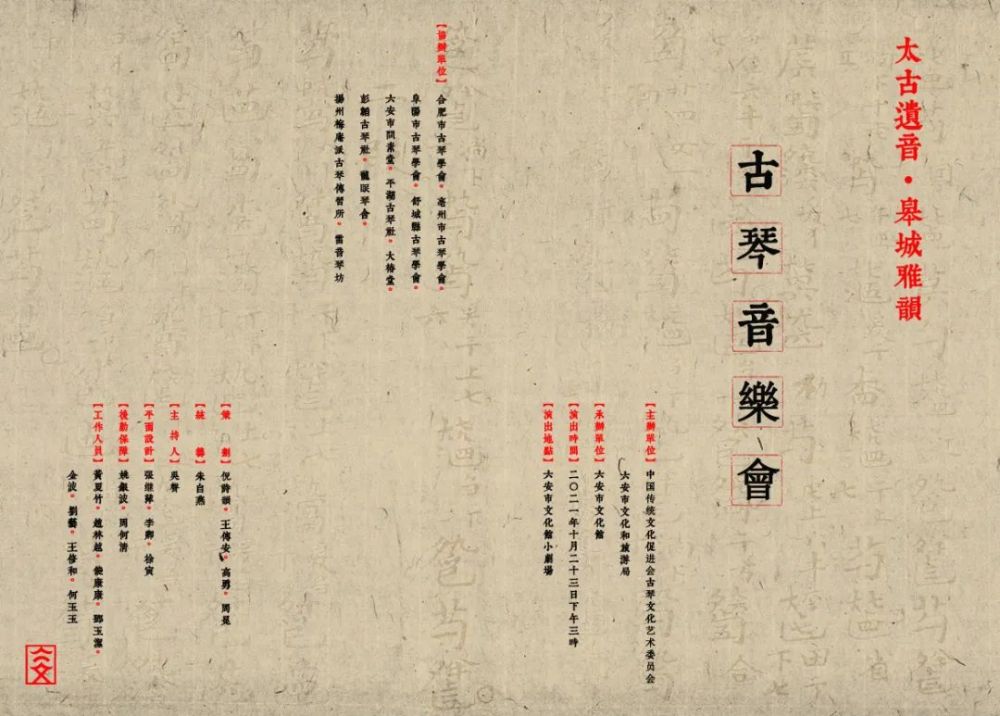 太古遺音·皋城雅韻
古琴音樂會
【主辦單位】中国传统文化促进会古琴文化艺术委员会
六安市文化和旅游局
【承辦單位】六安市文化館
【演出時間】二〇二一年十月二十三日下午三時
【演出地點】六安市文化館小劇場
【協辦單位】合肥市古琴學會。亳州市古琴學會。
阜陽市古琴學會。舒城縣古琴學會。
六安市問素堂。平湖古琴社。大椿堂。
彭韜古琴社。龍眠琴舍。
揚州梅庵派古琴傳習所。雷音琴坊
【策劃】倪詩韻。王傳安。高勇。周晃
【統籌】朱自燕
【主持人】吳晉
【平面設計】張继蘋。李卿。徐寅
【後勤保障】姚銀波。周何清
【工作人員】黃夏竹。趙林越。
金波。劉藝。王修和。何玉玉
六文